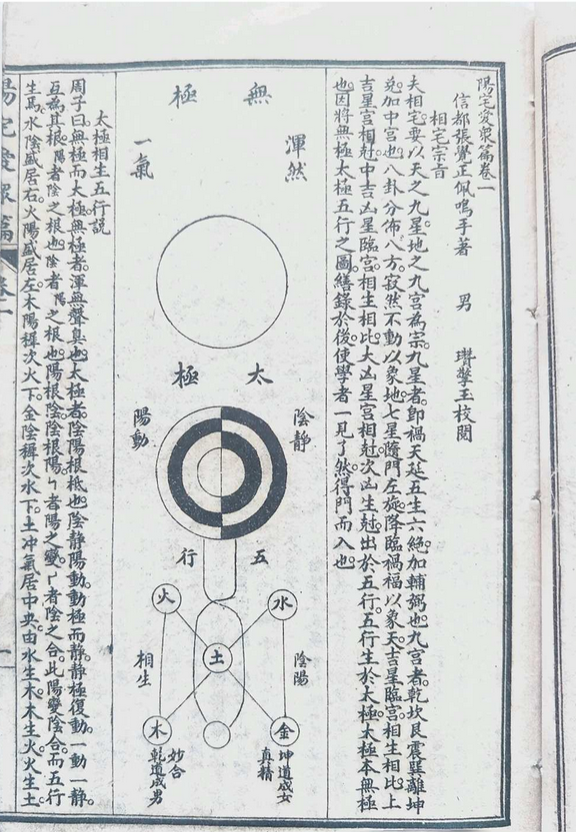 陽宅愛眾篇卷一
信都張覺正佩鳴手著 男 聨擎玉校閱
相宅宗旨
夫相宅要以天之九星地之九宮為宗九星者即禍天延五生六絕加輔弼也九宮者乾坎艮震巽離坤
兌加中宮也八卦分佈八方寂然不動以象地七星隨門左旋降臨禍福以象天吉星臨宮相生相比上
吉星宮相尅中吉凶星臨宮相生相比大凶星宮相尅次凶生尅出於五行五行生於太極太極本無極
也因將無極太極五行之圖繕錄於後使學者一見了然得門而入也
無極
渾然
一氣
太極
陰靜
陽動
五行
水
火
土
金
木
陰陽
相生
坤道成女
真精
妙合
乾道成男
太極相生五行說
周子曰無極而太極無極者渾無聲臭也太極者陰陽根柢也陰靜陽動動極而靜靜極復動一動一靜
互為其根陽者陰之根也陰者陽之根也陽根陰陰根陽㇉者陽之變㇀者陰之合此陽變陰合而五行
生焉水陰盛居右火陽盛居左木陽穉次火下金陰穉次水下土冲氣居中央由水生木木生火火生土
陽宅愛眾篇 卷一